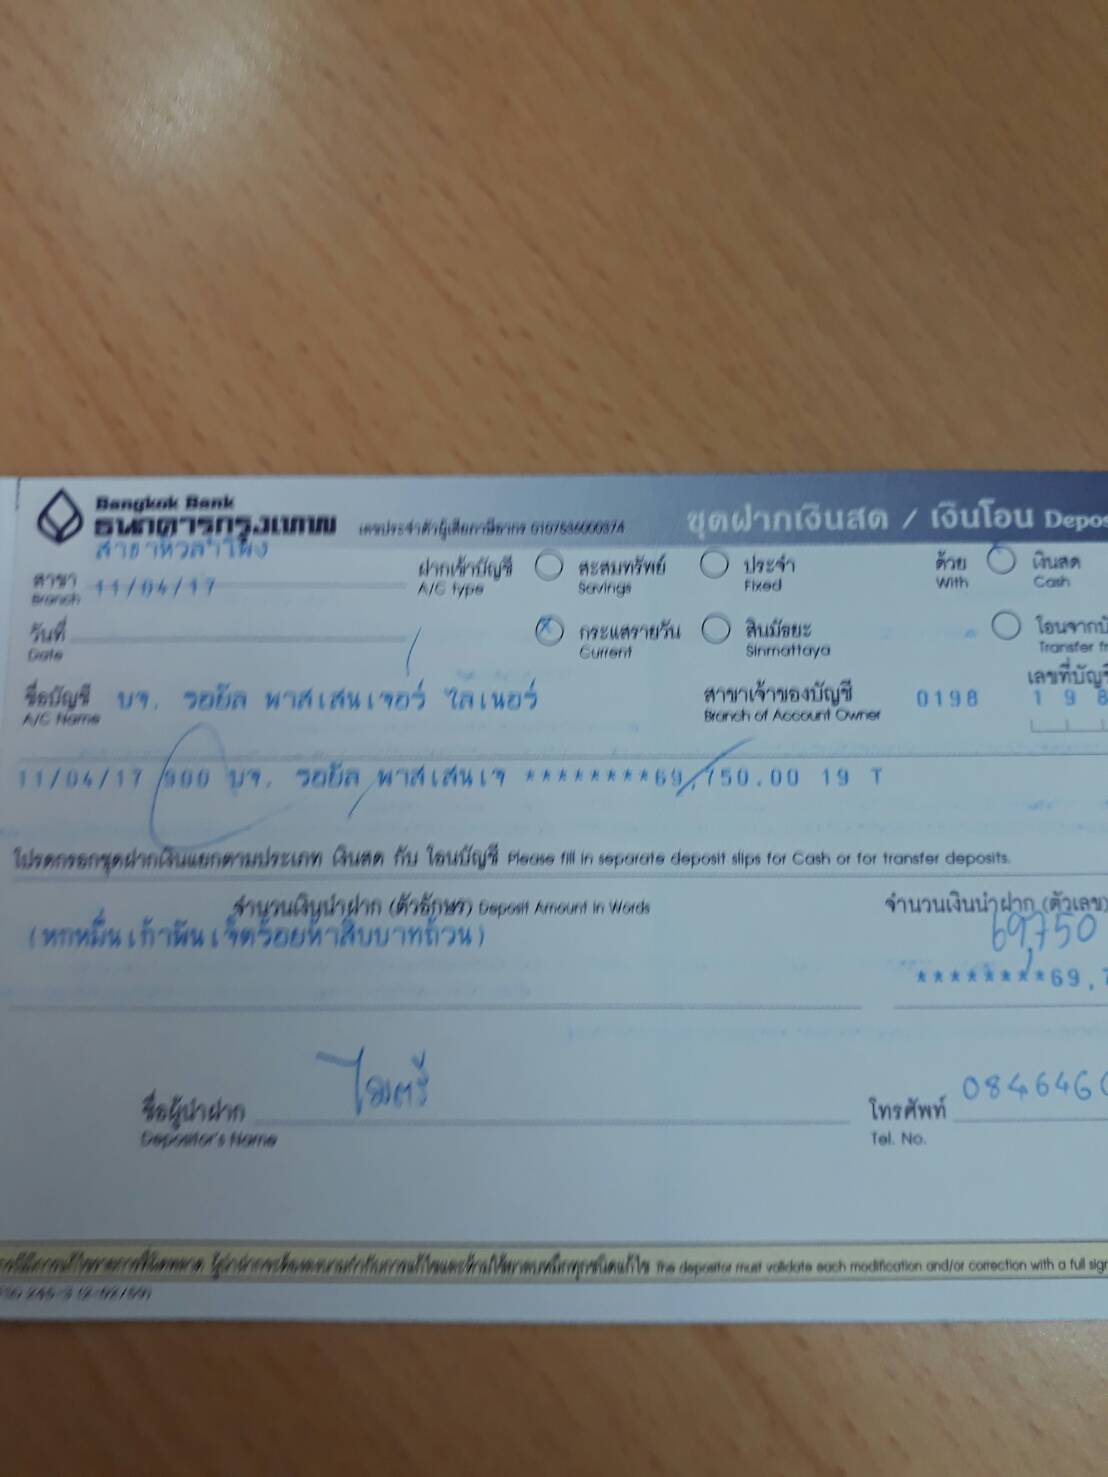 Bangkok Bank
ธนาคารกรุงเทพ
เลขประจำตัวผู้เสียภาษีอากร 0107536000374
ชุดฝากเงินสด / เงินโอน Depos
สาขาหัวลำโพง
สาขา
Branch
11/04/17
ฝากเข้าบัญชี
A/C type
สะสมทรัพย์
Savings
ประจำ
Fixed
ด้วย
With
เงินสด
Cash
วันที่
Date
กระแสรายวัน
Current
สินมัธยะ
Sinmattaya
โอนจากบั
Transfer fr
ชื่อบัญชี
A/C Name
บจ. รอยัล พาสเสนเจอร์ ไลเนอร์
สาขาเจ้าของบัญชี
Branch of Account Owner
0198
เลขที่บัญชี
1 9 8
11/04/17 900 บจ. รอยัล พาสเสนเจ ********69,750.00 19 T
โปรดกรอกชุดฝากเงินแยกตามประเภท เงินสด กับ โอนบัญชี Please fill in separate deposit slips for Cash or for transfer deposits.
จำนวนเงินนำฝาก (ตัวอักษร) Deposit Amount in Words
จำนวนเงินนำฝาก (ตัวเลข)
(หกหมื่นเก้าพันเจ็ดร้อยห้าสิบบาทถ้วน)
69,750
********69,7
ชื่อผู้นำฝาก
Depositor's Name
ไมตรี
โทรศัพท์
Tel. No.
0846460
The depositor must validate each modification and/or correction with a full sign